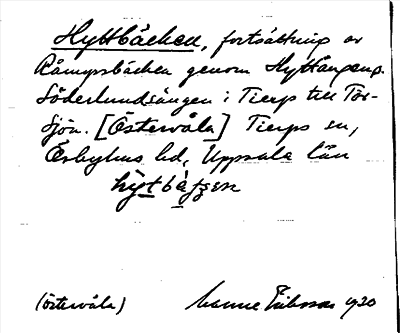 Hyttbäcken, fortsättning av
Råmyrsbäcken genom Hyttängen o.
Söderlundsängen i Tierp till Tor-
sjön. [Östervåla] Tierps sn,
Örbyhus hd, Uppsala län
hytbäkən
(Östervåla) Manne Eriksson 1930